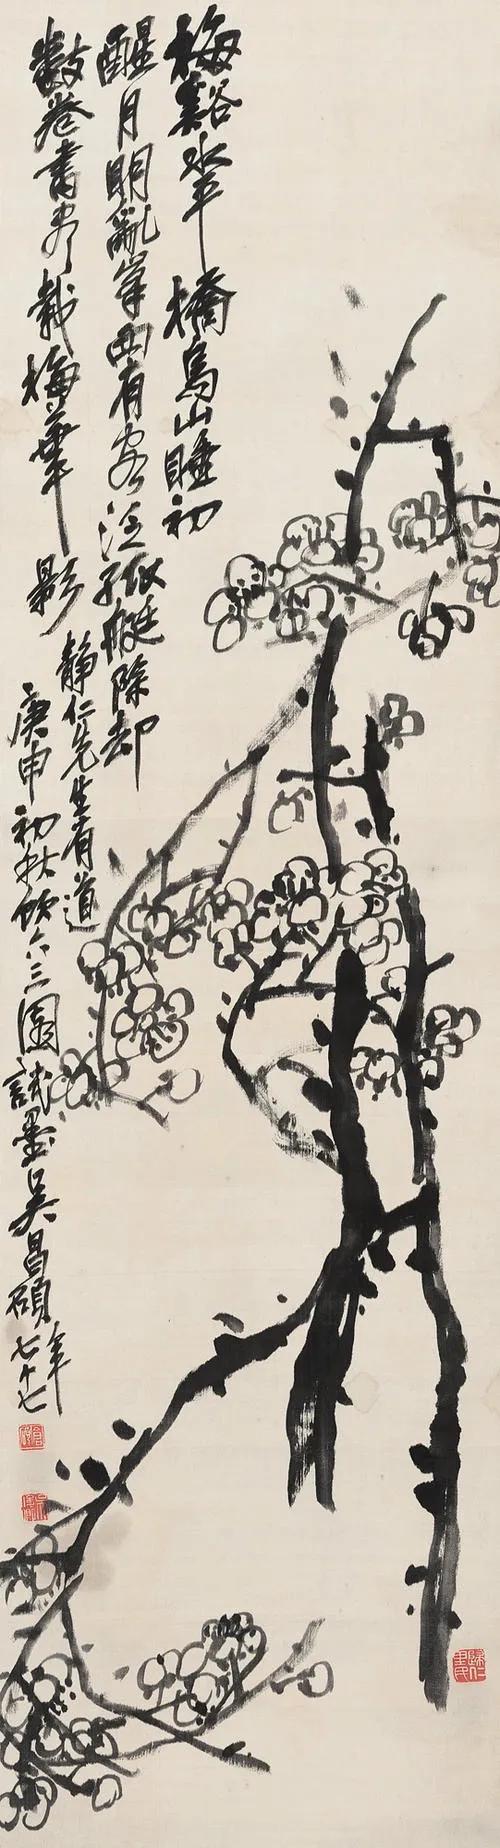 梅谿水平橋烏山睡初
醒月明亂峯西有客泛孤艇除却
數卷書盡載梅華影
靜仁先生有道
庚申初秋飲六三園試墨吳昌碩年七十七
歸仁里民